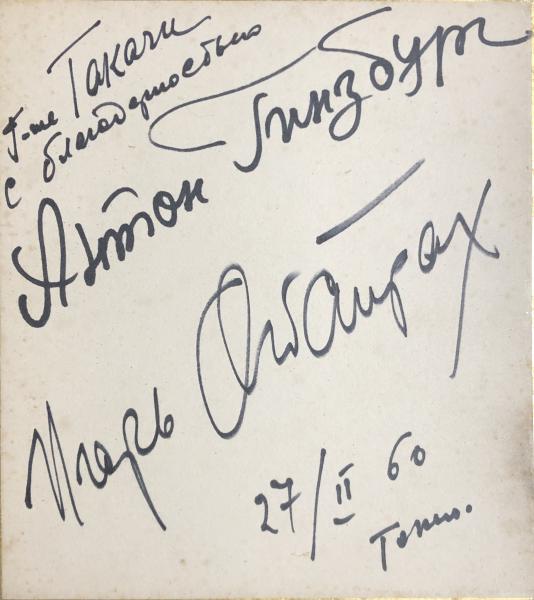 Г-же Такачи
с благодарностью
Антон Гинзбург
Игорь Ойстрах
27/II 60